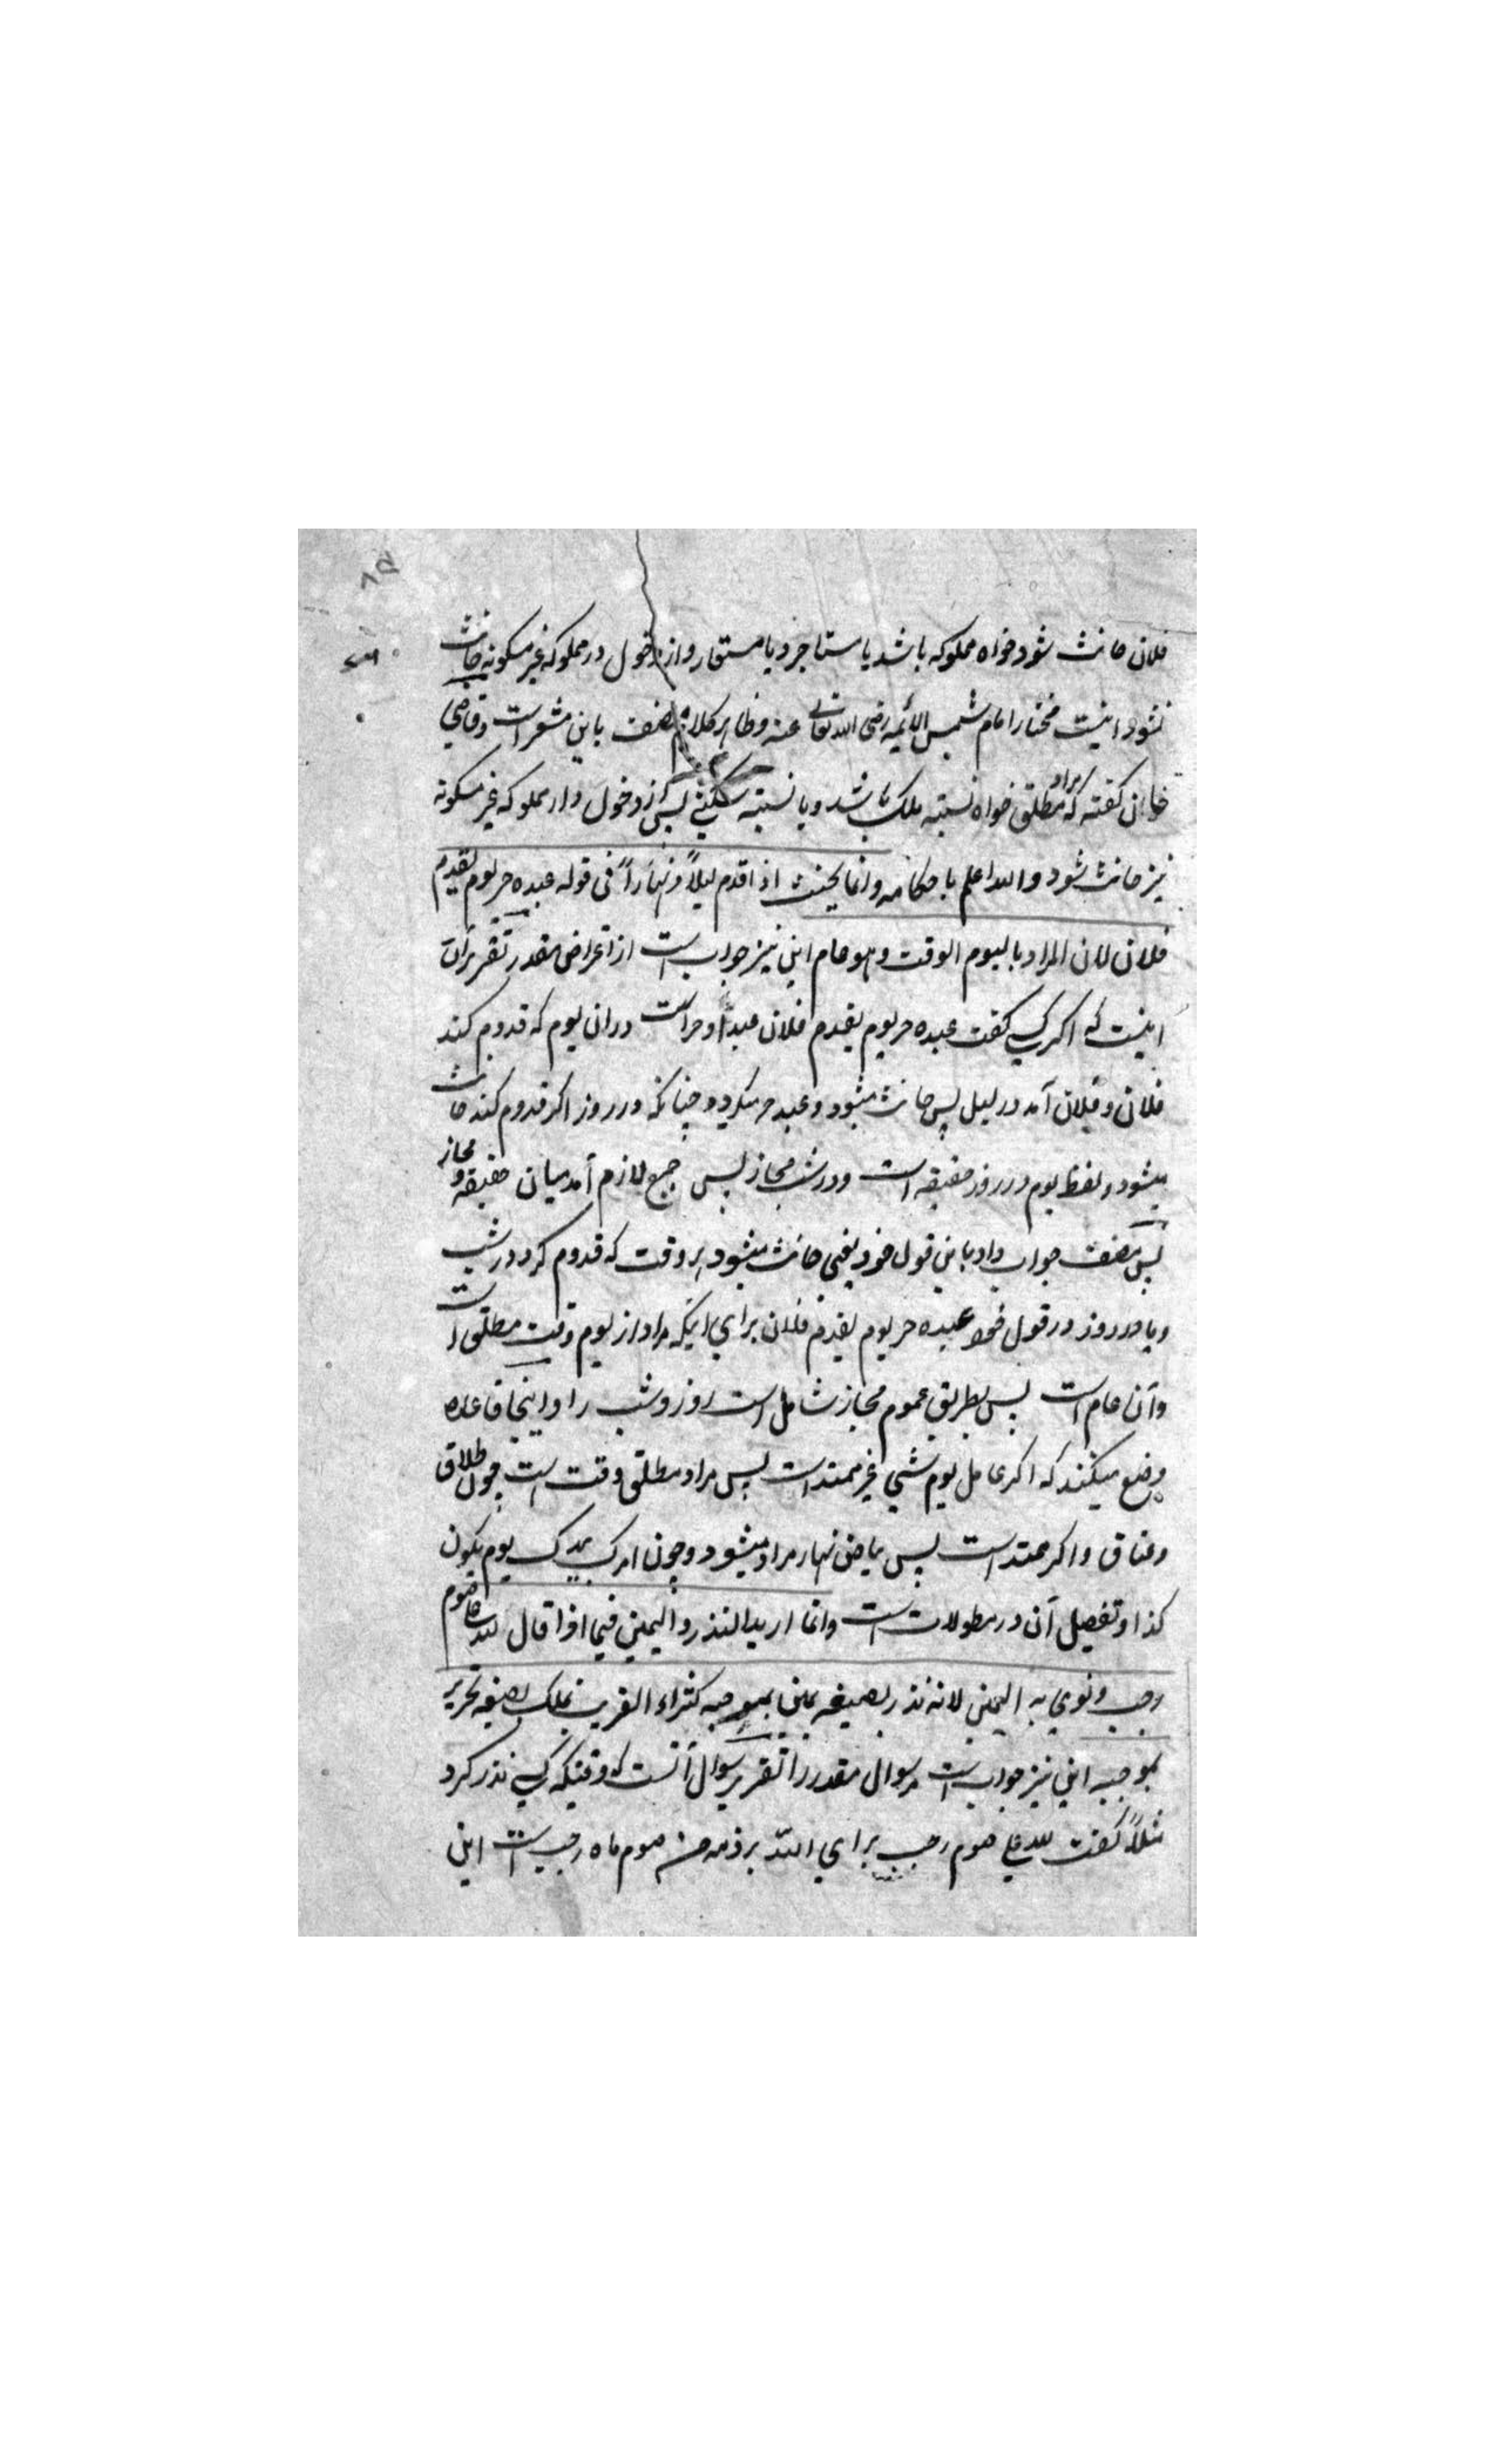 ۸۵
فلان حانث شود خواه مملوکه باشد یا مستاجر و یا مستعار و از دخول در مملوکه غیر مسکونه حانث
نشود اینست مختار امام شمس الائمه رضی الله تعالی عنه و ظاهر کلام مصنف باین مشعر است و قاضی
خان گفته که مراد مطلق خواه نسبته ملک باشد و یا نسبته سکنی پس از دخول دار مملوکه غیر مسکونه
نیز حانث شود والله اعلم باحکامه وانما یحنث اذا قدم لیلاً ونهاراً فی قوله عبده حر یوم یقدم
فلان لان المراد بالیوم الوقت وهو عام این نیز جواب است از اعتراض مقدر تقریر آن
اینست که اگر کسی گفت عبده حر یوم یقدم فلان عبد او حر است در ان یوم که قدوم کند
فلان و فلان آمد در لیل پس حانث میشود و عبد حر میگردد چنانکه در روز اگر قدوم کند حانث
میشود و لفظ یوم در روز حقیقه است و در شب مجاز پس جمع لازم آمد میان حقیقه و مجاز
پس مصنف جواب داد باین قول خود یعنی حانث میشود هر وقت که قدوم کرد در شب
و یا در روز در قول خود عبده حر یوم یقدم فلان برای اینکه مراد از یوم وقت مطلق است
و آن عام است پس بطریق عموم مجاز شامل است روز و شب را و اینجا قاعده
وضع میکنند که اگر عامل یوم شیی غیر ممتد است پس مراد مطلق وقت است چون طلاق
و عتاق و اگر ممتد است پس بیاض نهار مراد میشود و چون امرک بیدک یوم یکون
کذا و تفصیل آن در مطولات است وانما ارید النذر والیمین فیما اذا قال لله علی صوم
رجب ونوی به الیمین لانه نذر بصیغه یمین بموجبه کشراء القریب تملک بصیغه تحریر
بموجبه این نیز جواب است مر سوال مقدر را تقریر سوال آنست که وقتیکه کسی نذر کرد
مثلاً گفت لله علی صوم رجب برای الله بر ذمه من صوم ماه رجب است این